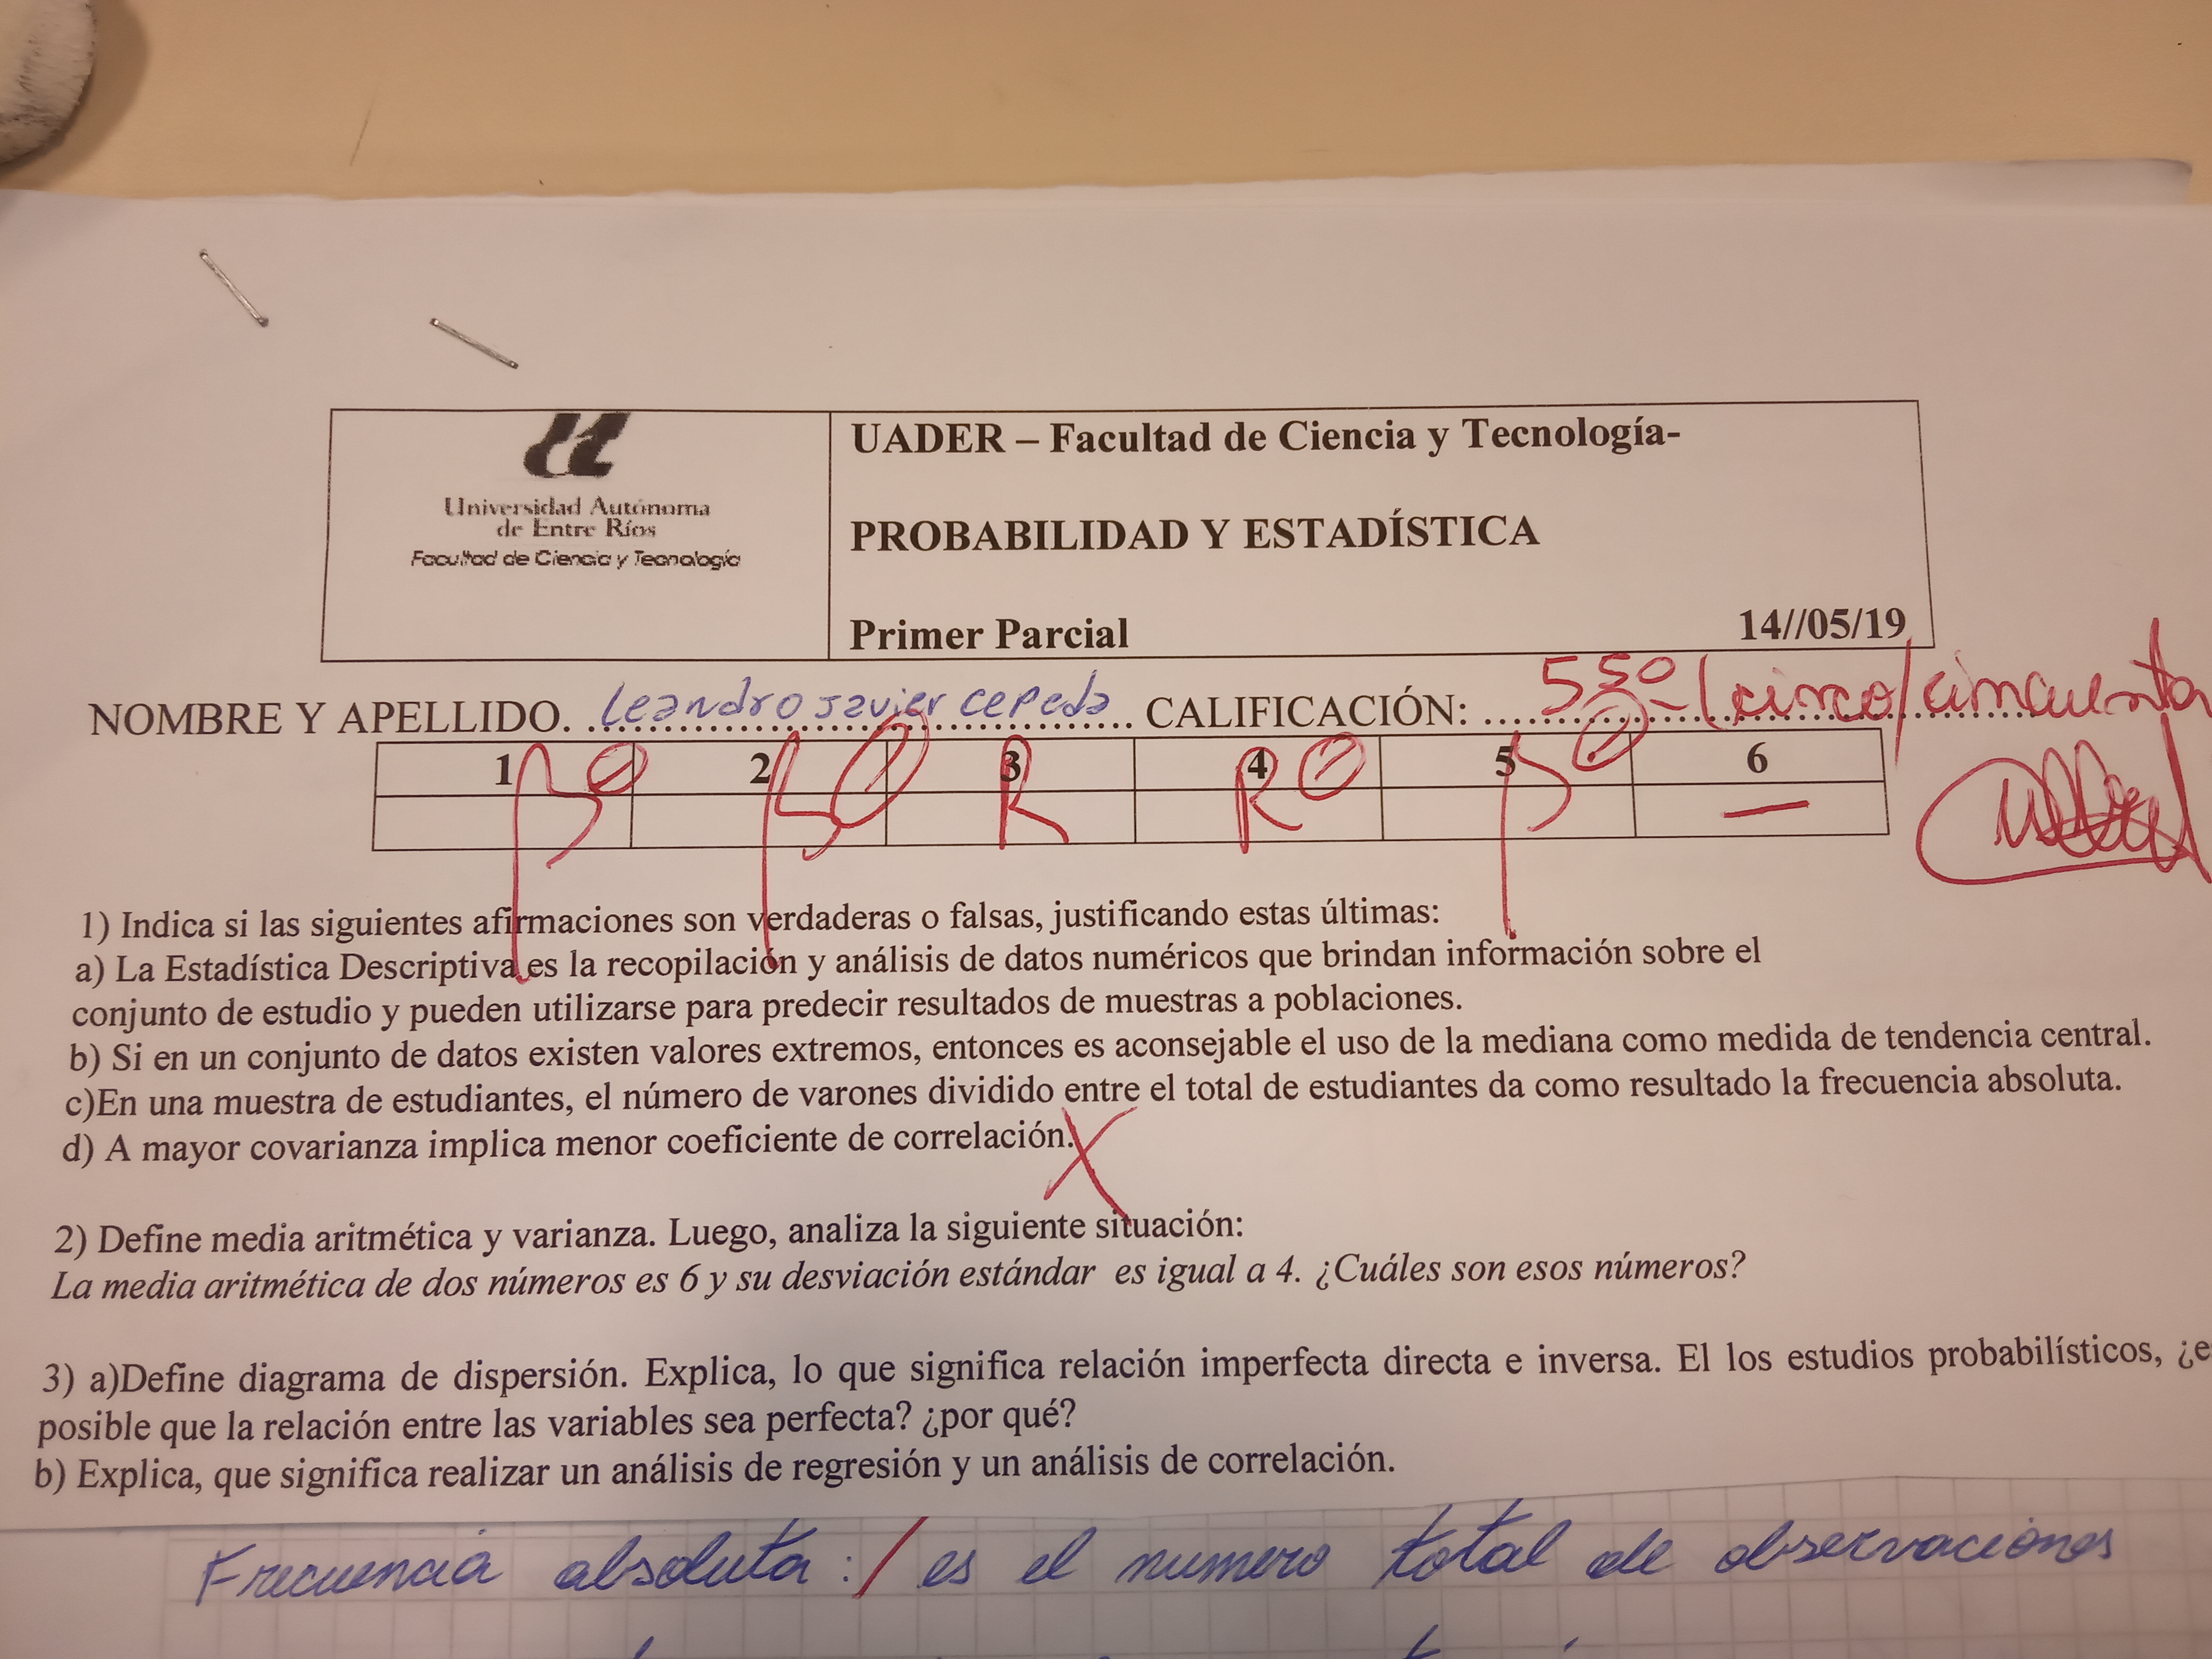 Universidad Autónoma
de Entre Ríos
Facultad de Ciencia y Tecnología
UADER – Facultad de Ciencia y Tecnología-
PROBABILIDAD Y ESTADÍSTICA
Primer Parcial 14//05/19
NOMBRE Y APELLIDO. Leandro Javier Cepeda CALIFICACIÓN: 5 50 (cinco/cincuenta
1 2 3 4 5 6
B- B- R R- B- —
1) Indica si las siguientes afirmaciones son verdaderas o falsas, justificando estas últimas:
a) La Estadística Descriptiva es la recopilación y análisis de datos numéricos que brindan información sobre el
conjunto de estudio y pueden utilizarse para predecir resultados de muestras a poblaciones.
b) Si en un conjunto de datos existen valores extremos, entonces es aconsejable el uso de la mediana como medida de tendencia central.
c)En una muestra de estudiantes, el número de varones dividido entre el total de estudiantes da como resultado la frecuencia absoluta.
d) A mayor covarianza implica menor coeficiente de correlación.
2) Define media aritmética y varianza. Luego, analiza la siguiente situación:
La media aritmética de dos números es 6 y su desviación estándar es igual a 4. ¿Cuáles son esos números?
3) a)Define diagrama de dispersión. Explica, lo que significa relación imperfecta directa e inversa. El los estudios probabilísticos, ¿e
posible que la relación entre las variables sea perfecta? ¿por qué?
b) Explica, que significa realizar un análisis de regresión y un análisis de correlación.
Frecuencia absoluta: / es el numero total de observaciones